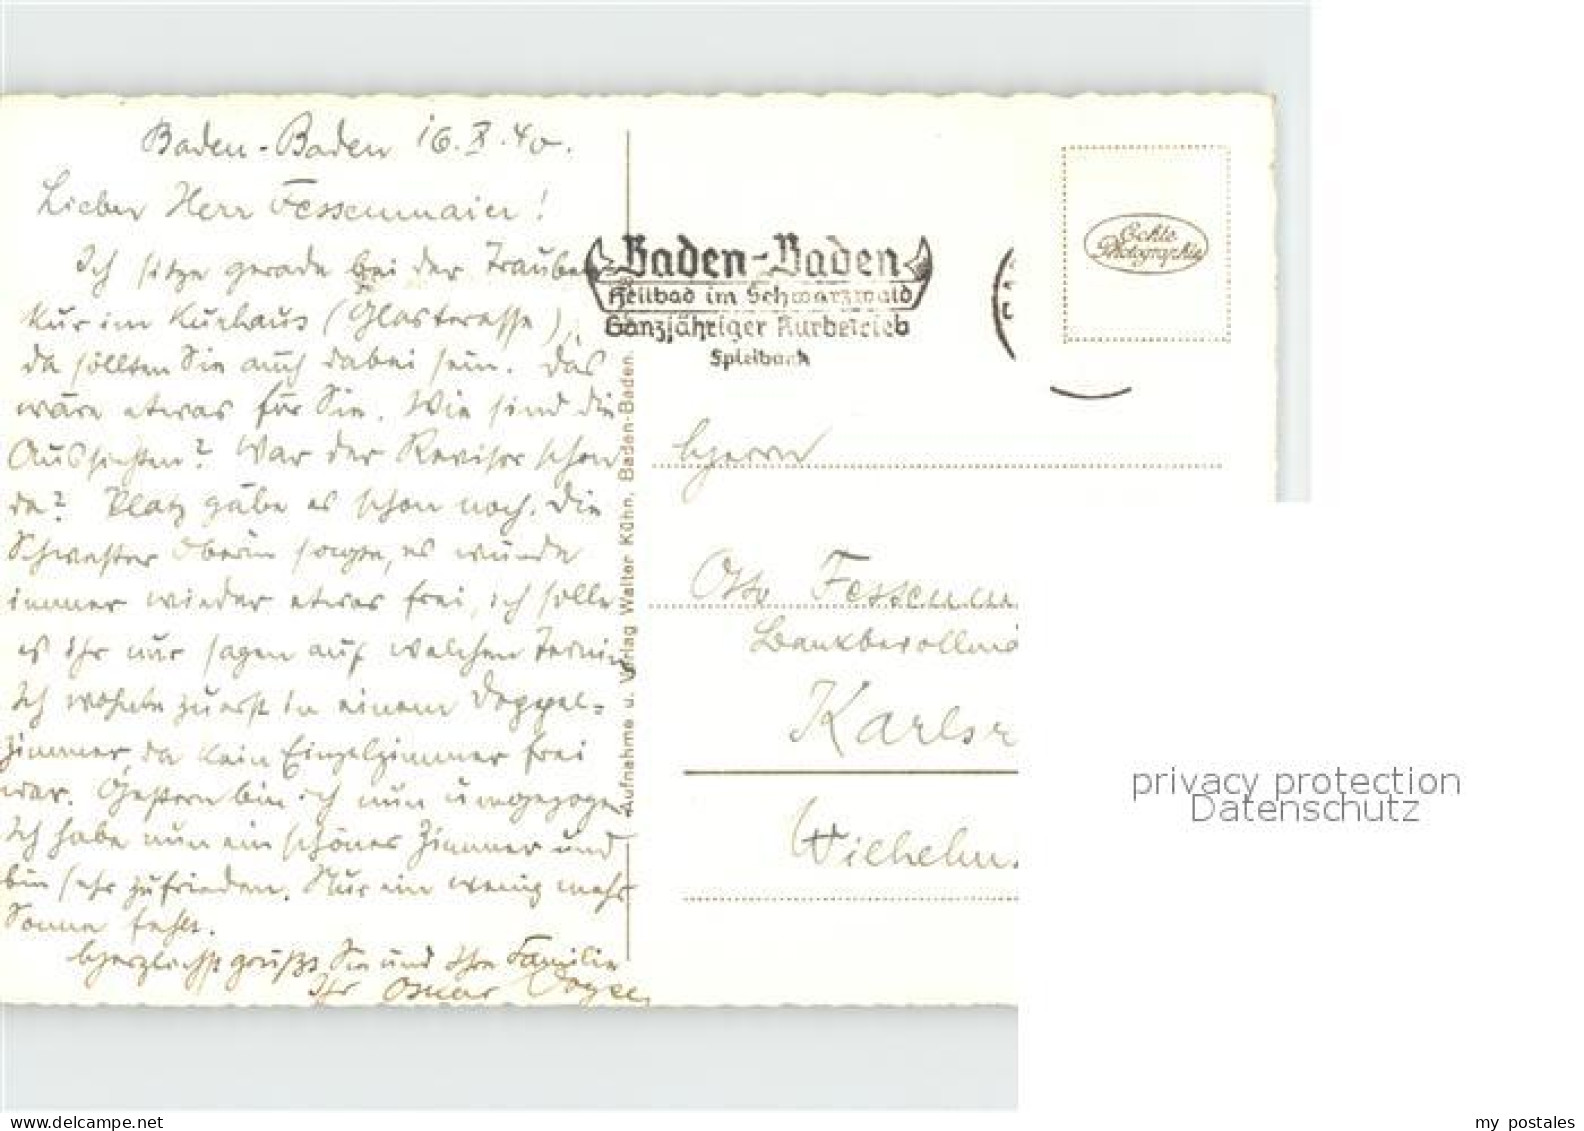 Baden-Baden 16. X. 40.
Lieber Herr Fessenmaier!
Ich sitze gerade bei der Trauben-
kur im Kurhaus (Glasterasse),
da sollten Sie auch dabei sein. Das
wäre etwas für Sie. Wie sind die
Aussichten? War der Revisor schon
da? Platz gäbe es schon noch. Die
Schwester Oberin sagte, es würde
immer wieder etwas frei, ich solle
es Ihr nur sagen auf welchen Termin
Ich wohnte zuerst in einem Doppel-
zimmer, da kein Einzelzimmer frei
war. Gestern bin ich nun umgezogen
Ich habe nun ein schönes Zimmer und
bin sehr zufrieden. Nur ein wenig mehr
Sonne fehlt.
Herzlichst grüßt Sie und Ihre Familie
Ihr Oskar
Aufnahme u. Verlag Walter Kühn, Baden-Baden.
Baden-Baden
Heilbad im Schwarzwald
Ganzjähriger Kurbetrieb
Spielbank
Echte
Photographie
Herrn
Otto Fessenm
Bankbevollmä
Karlsr
Wilhelm
privacy protection
Datenschutz
my postales
www.delcampe.net